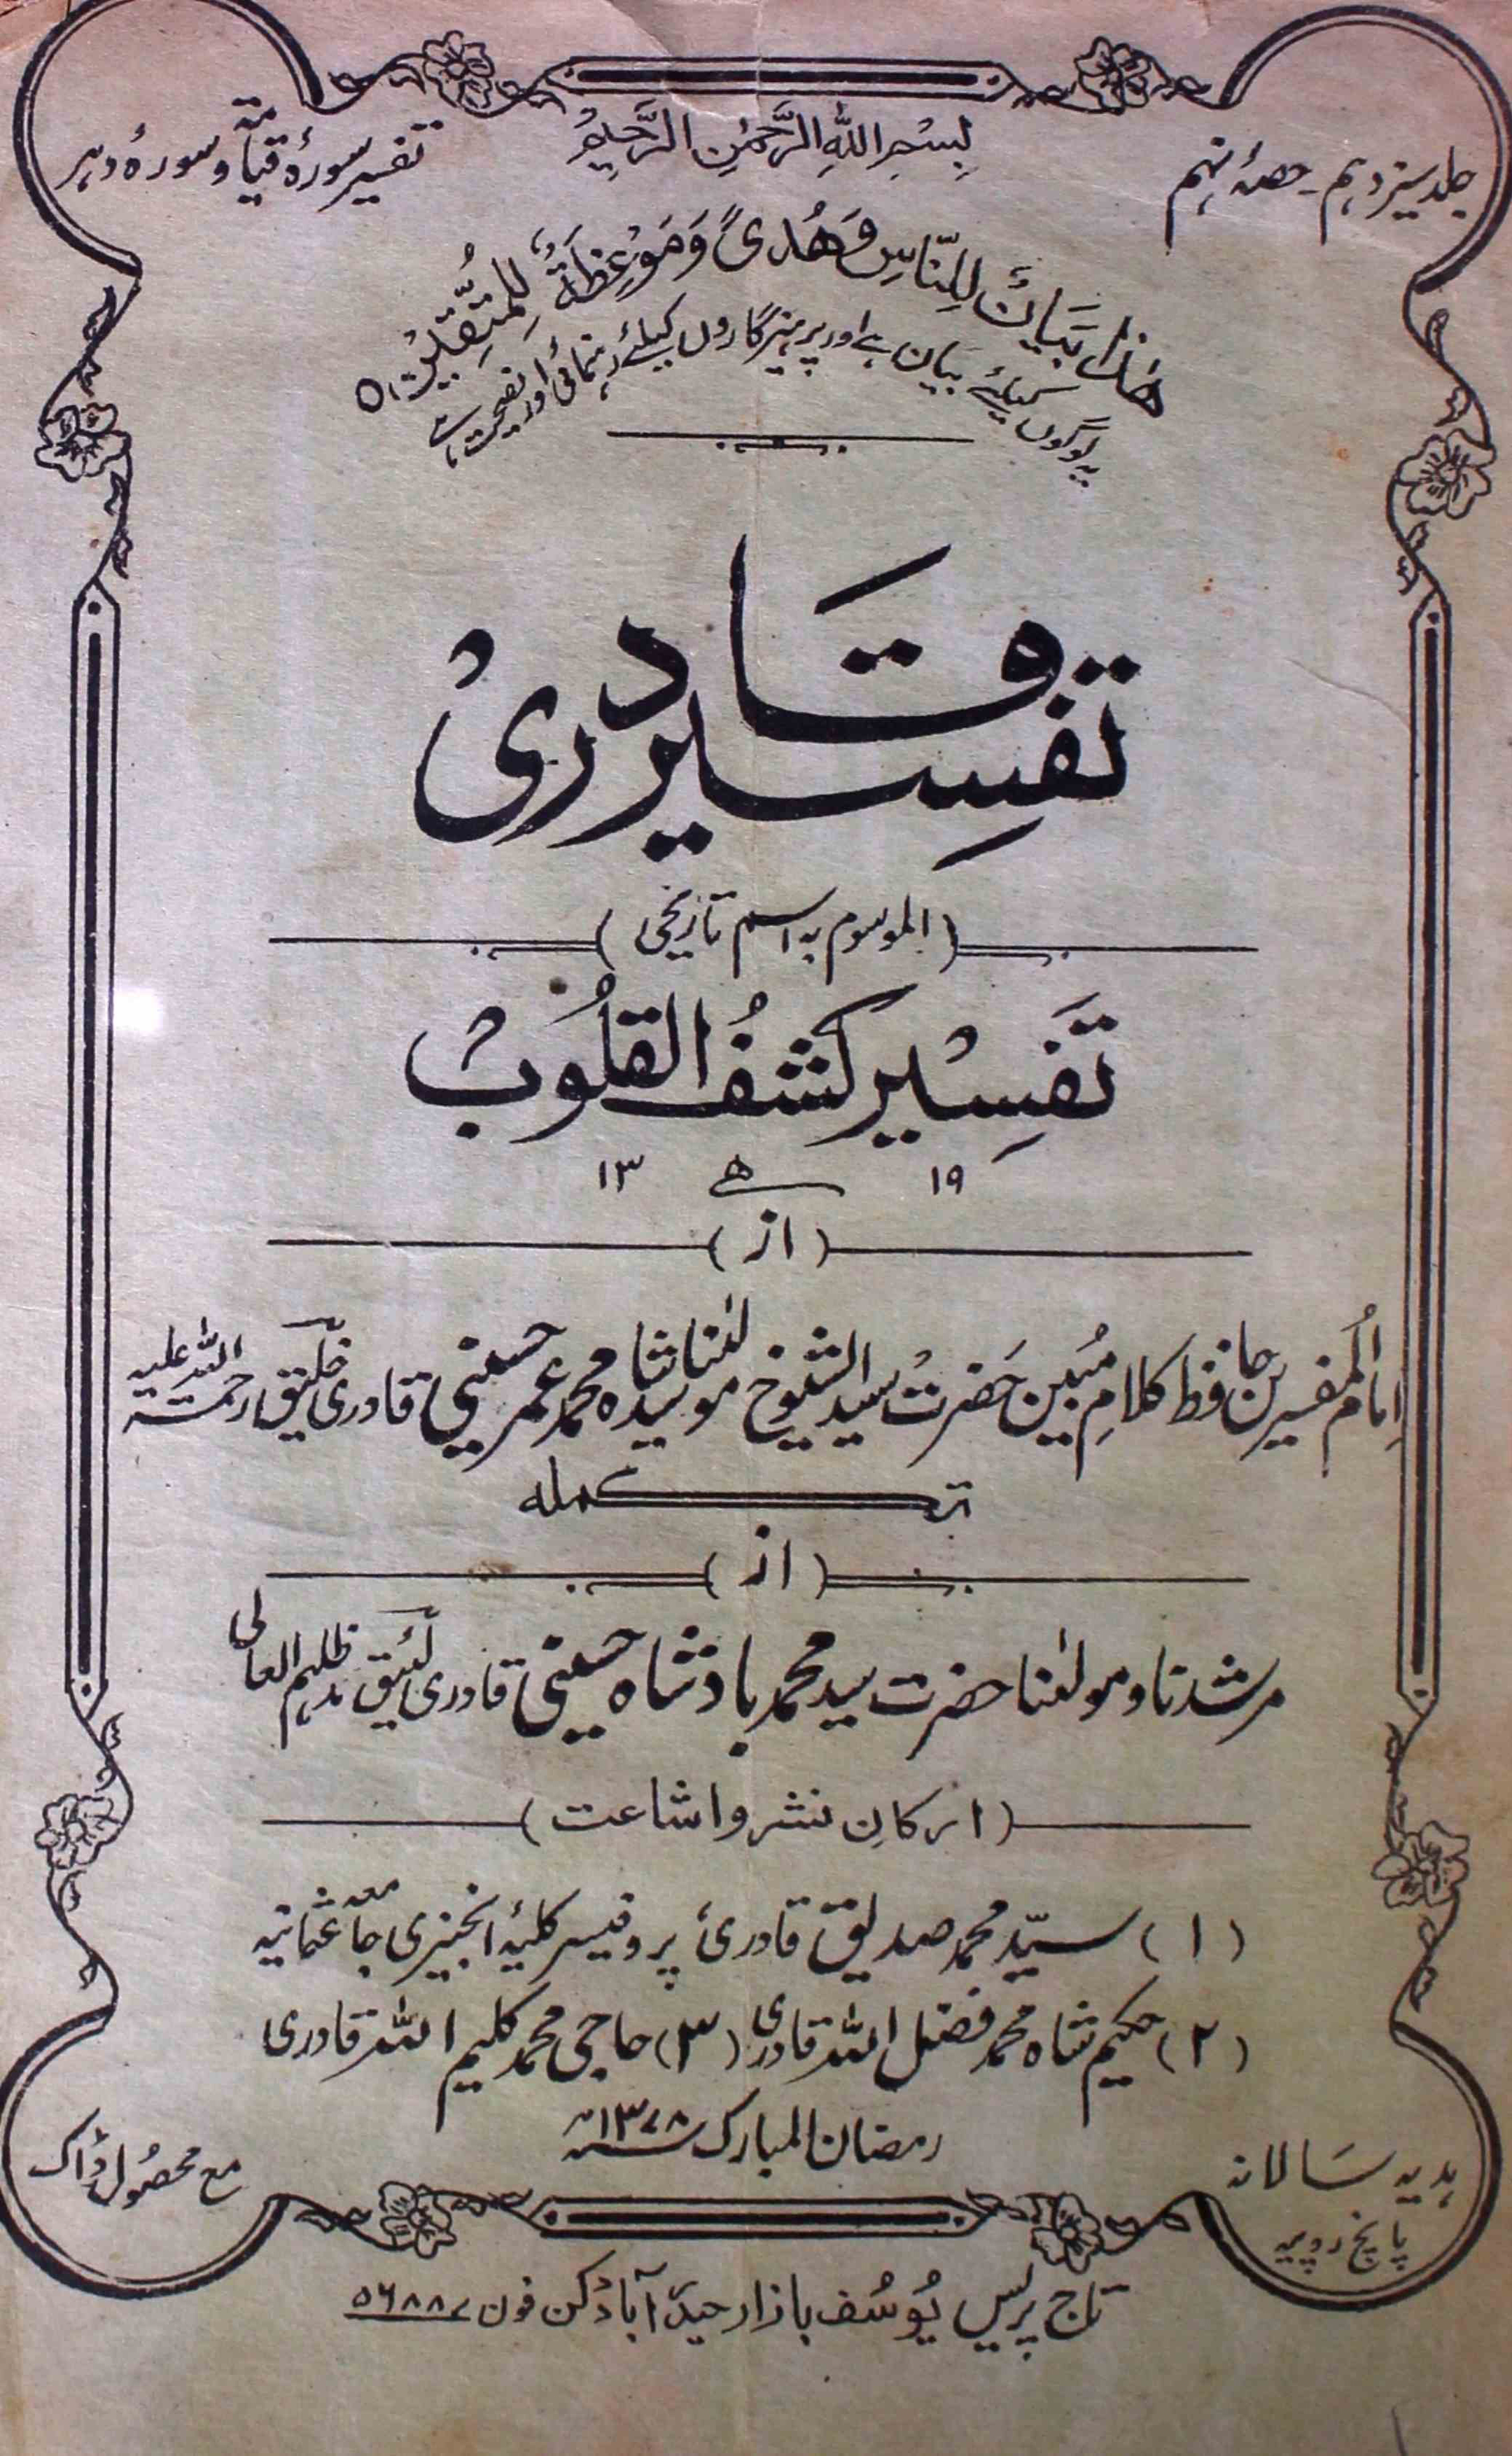 بِسْمِ اللهِ الرَّحْمٰنِ الرَّحِيْمِ
جلد سیزدہم۔ حصۂ نہم
تفسیر سورۂ قیامۃ و سورۂ دہر
هٰذَا بَيَانٌ لِلنَّاسِ وَهُدًى وَمَوْعِظَةٌ لِلْمُتَّقِيْنَ ۝
یہ لوگوں کیلئے بیان ہے اور پرہیزگاروں کیلئے رہنمائی اور نصیحت ہے
تفسیر قادری
(الموسوم بہ اسم تاریخی)
تَفسِیر کشفُ القلُوب
۱۹ ھ ۱۳
(از)
اِمامُ المفسرین حافظ کلامِ مُبین حضرت سید الشیوخ مولٰنا سید شاہ محمد عمر حسینی قادری خلیق رحمتہ اللہ علیہ
تکملہ
(از)
مرشدنا و مولٰنا حضرت سید محمد بادشاہ حسینی قادری لئیق مدظلہم العالی
(ارکانِ نشر و اشاعت)
(۱) سیّد محمد صدیق قادری پروفیسر کلیۂ انجنیری جامعہ عثمانیہ
(۲) حکیم شاہ محمد فضل اللہ قادری (۳) حاجی محمد کلیم اللہ قادری
رمضان المبارک ۱۳۷۸ھ
ہدیہ سَالانہ
پانچ روپیہ
مع محصُول ڈاک
تاج پریس یُوسُف بازار حیدرآباد دکن فون ۵۶۸۸۷